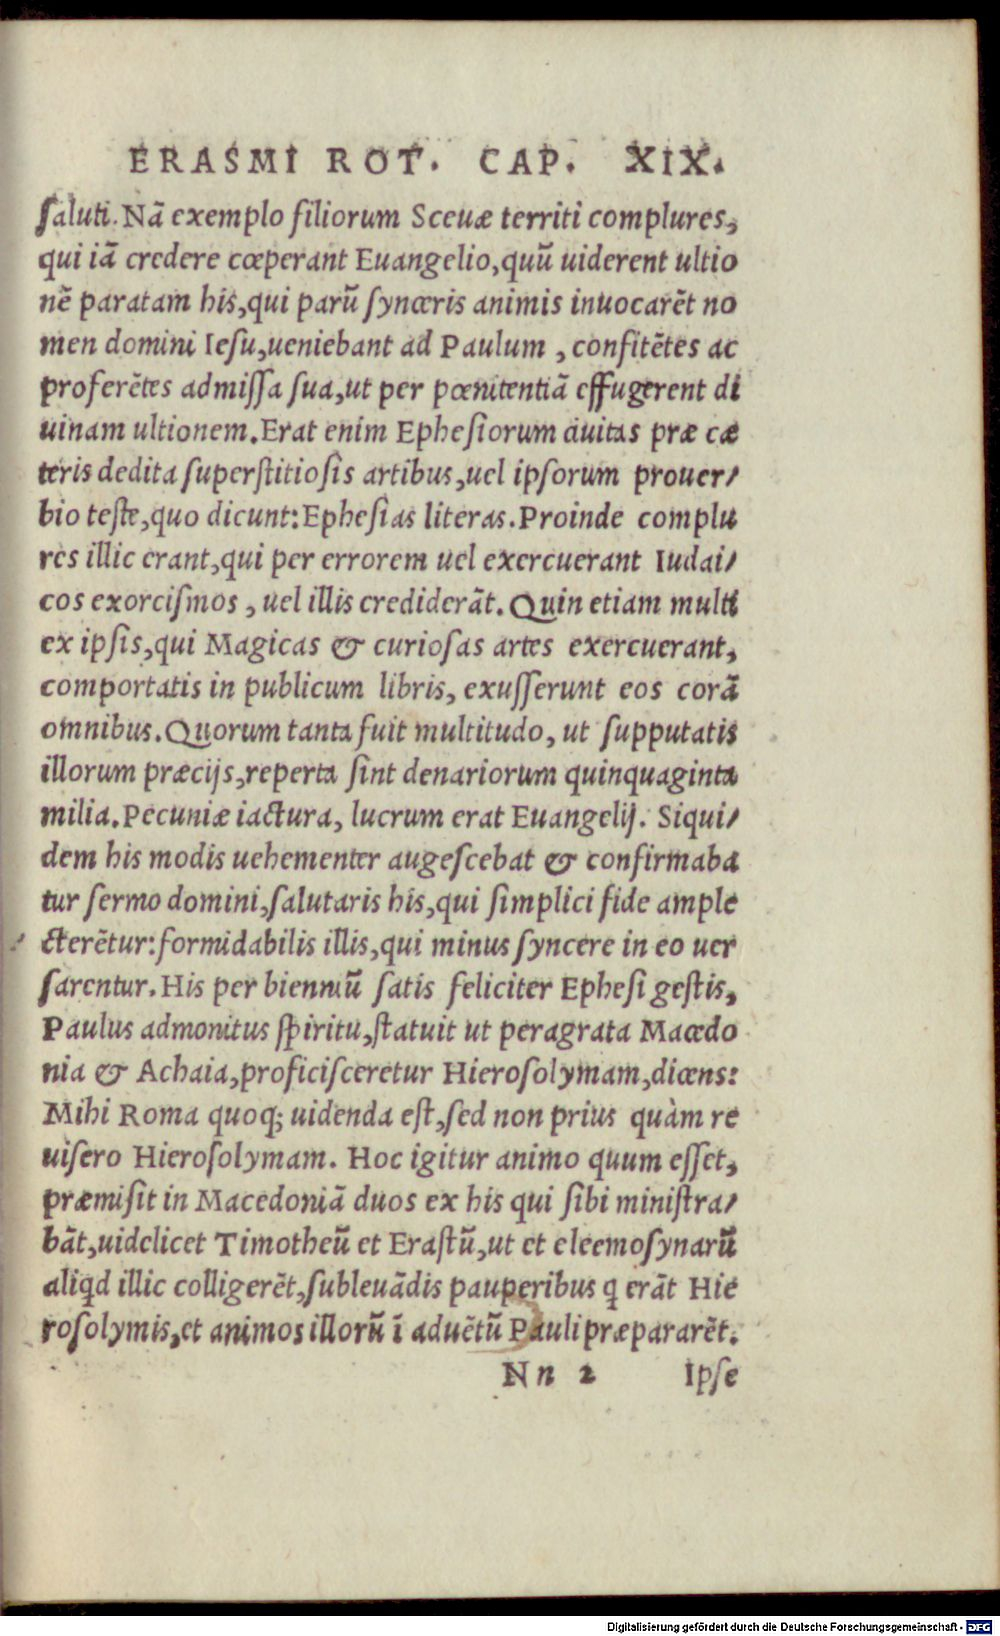 ERASMI ROT. CAP. XIX.
saluti. Nã exemplo filiorum Sceuæ territi complures,
qui iã credere cœperant Euangelio, quũ uiderent ultio
nẽ paratam his, qui parũ synceris animis inuocarẽt no
men domini Iesu, ueniebant ad Paulum, confitẽtes ac
proferẽtes admissa sua, ut per pœnitentiã effugerent di
uinam ultionem. Erat enim Ephesiorum ciuitas præ cæ
teris dedita superstitiosis artibus, uel ipsorum prouer/
bio teste, quo dicunt: Ephesias literas. Proinde complu
res illic erant, qui per errorem uel exercuerant Iudai/
cos exorcismos, uel illis crediderãt. Quin etiam multi
ex ipsis, qui Magicas & curiosas artes exercuerant,
comportatis in publicum libris, exusserunt eos corã
omnibus. Quorum tanta fuit multitudo, ut supputatis
illorum præcijs, reperta sint denariorum quinquaginta
milia. Pecuniæ iactura, lucrum erat Euangelij. Siqui/
dem his modis uehementer augescebat & confirmaba
tur sermo domini, salutaris his, qui simplici fide ample
cterẽtur: formidabilis illis, qui minus syncere in eo uer
sarentur. His per bienniũ satis feliciter Ephesi gestis,
Paulus admonitus spiritu, statuit ut peragrata Macedo
nia & Achaia, proficisceretur Hierosolymam, dicens:
Mihi Roma quoq; uidenda est, sed non prius quàm re
uisero Hierosolymam. Hoc igitur animo quum esset,
præmisit in Macedoniã duos ex his qui sibi ministra/
bãt, uidelicet Timotheũ et Erastũ, ut et eleemosynarũ
aliqd illic colligerẽt, subleuãdis pauperibus q erãt Hie
rosolymis, et animos illorũ ĩ aduẽtũ Pauli præpararẽt.
Nn 2 Ipse
Digitalisierung gefördert durch die Deutsche Forschungsgemeinschaft - DFG